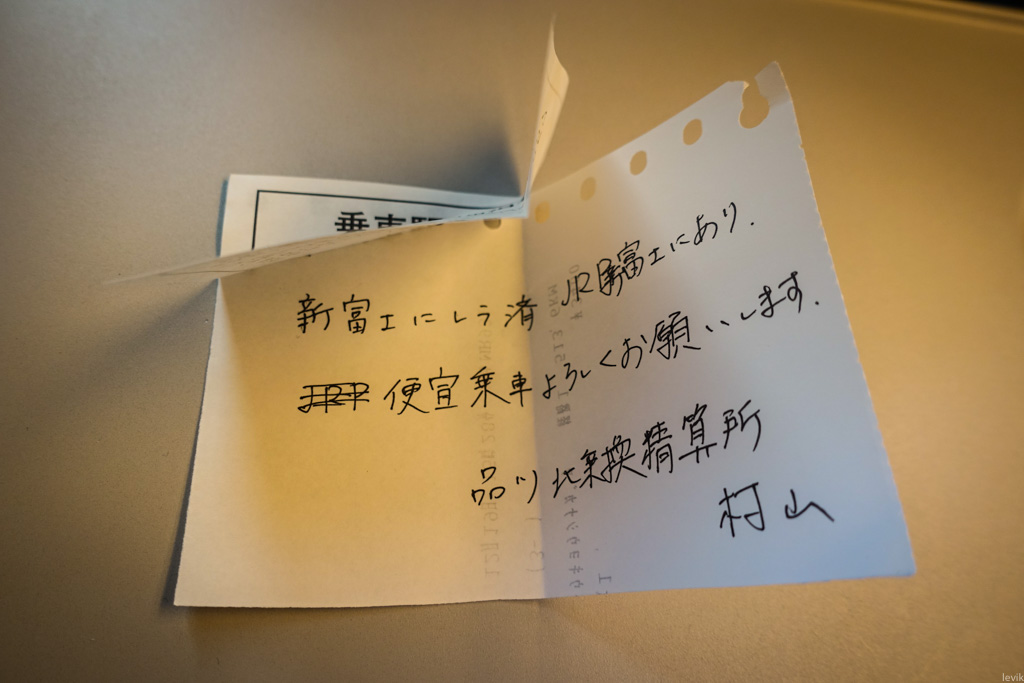 乗車駅
新富士にしラ済 JR富士にあり.
便宜乗車よろしくお願いします.
品川北乗換精算所
村山
levik